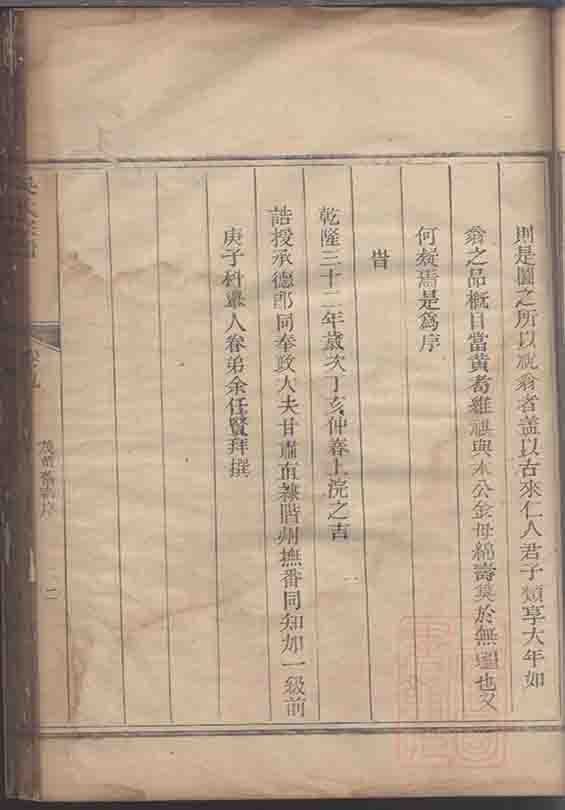 則是圖之所以祝翁者蓋以古來仁人君子類享大年如
翁之品概目當黃耇雞祺與木公金母綿壽算於無疆也又
何疑焉是爲序
旹
乾隆三十二年歲次丁亥仲春上浣之吉
誥授承德郎同奉政大夫甘肅直隸階州撫番同知加一級前
庚子科舉人眷弟余任賢拜撰
卷九
序
二